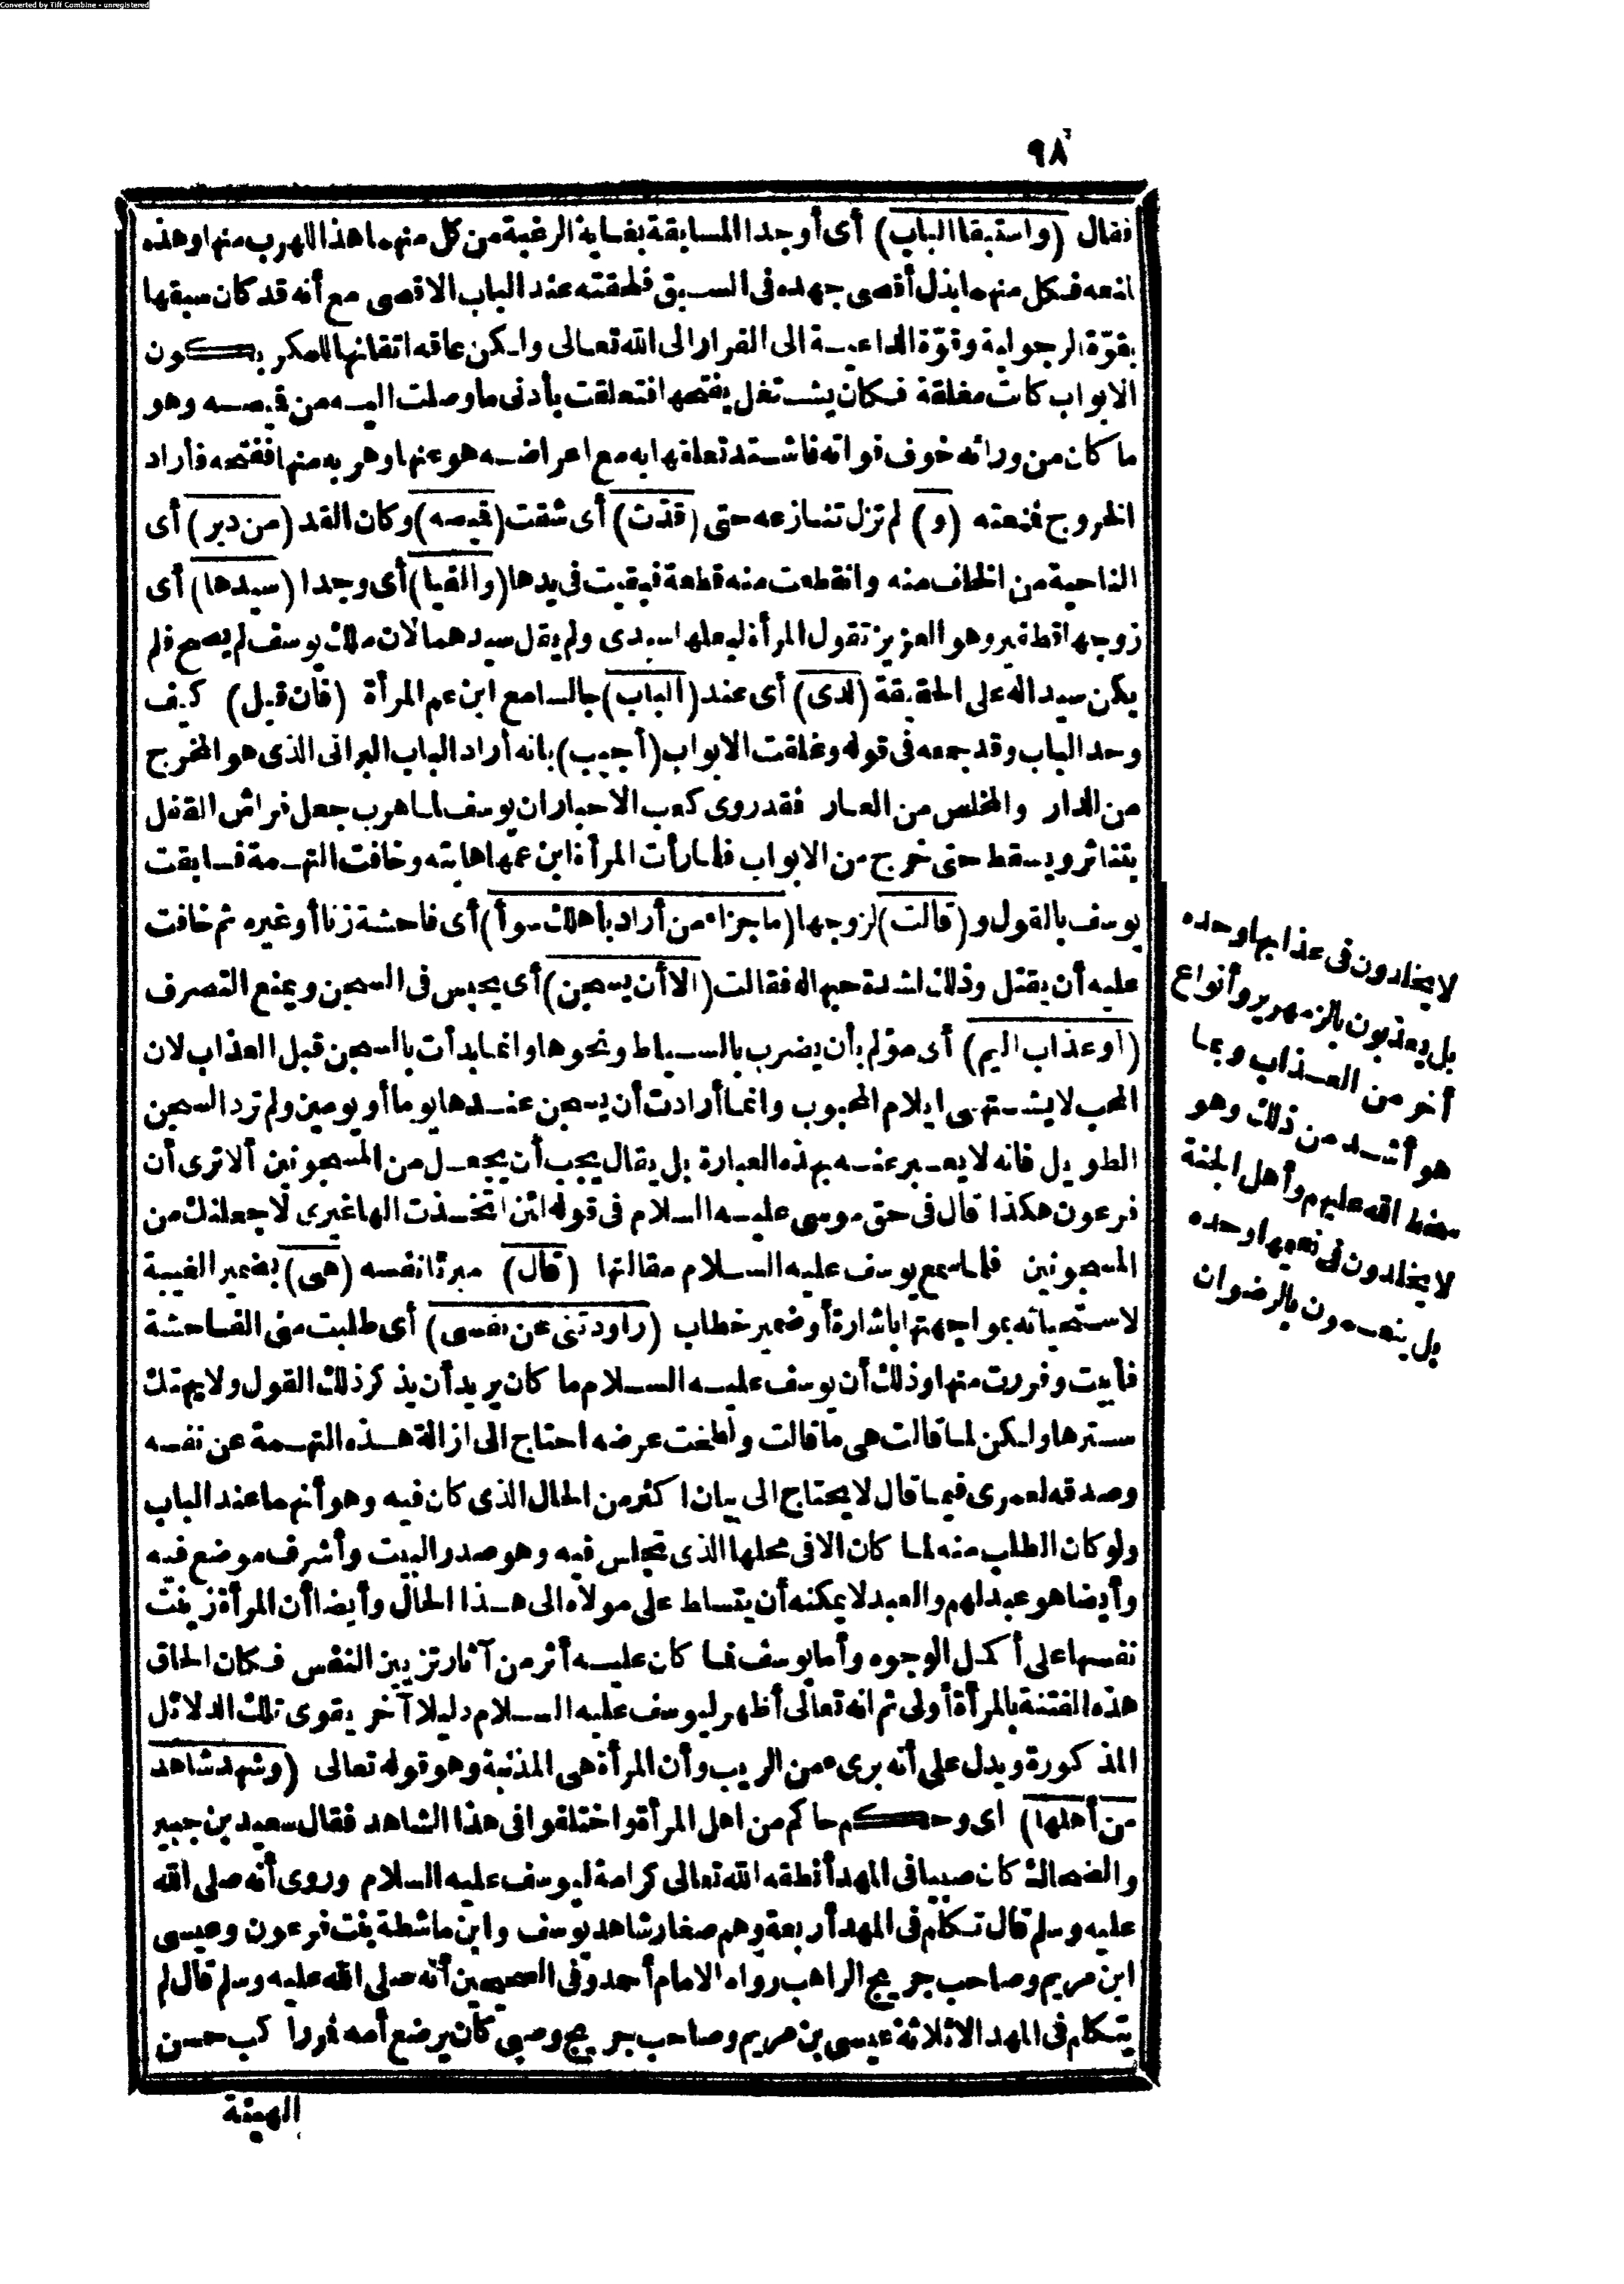 Converted by Tiff Combine - unregistered
٩٨
فقال (واستبقا الباب) أى أوجدا المسابقة بغاية الرغبة من كل منهما هذا للهرب منها وهذه
لمنعه فكل منهما بذل أقصى جهده فى السبق فلحقته عند الباب الاقصى مع أنه قد كان سبقها
بقوّة الرجولية وقوّة الداعية الى الفرار الى الله تعالى ولكن عاقه اتقانها للمكر بكون
الابواب كانت مغلقة فكان يشتغل بفتحها فتعلقت بأدنى ما وصلت اليه من قميصه وهو
ما كان من ورائه خوف فواته فاشتد تعلقها به مع اعراضه هو عنها وهربه منها ففتحه فأراد
الخروج فمنعته (و) لم تزل تنازعه حتى (قدّت) أى شقت (قميصه) وكان القد (من دبر) أى
الناحية من الخلف منه وانقطعت منه قطعة فبقيت فى يدها (وألفيا) أى وجدا (سيدها) أى
زوجها قطفير وهو العزيز تقول المرأة لبعلها سيدى ولم يقل سيدهما لان ملك يوسف لم يصح فلم
يكن سيدا له على الحقيقة (لدى) أى عند (الباب) جالسا مع ابن عم المرأة (فان قيل) كيف
وحد الباب وقد جمعه فى قوله وغلقت الابواب (أجيب) بانه أراد الباب البرانى الذى هو المخرج
من الدار والمخلص من العار فقد روى كعب الاحبار ان يوسف لما هرب جعل فراش القفل
يتناثر ويسقط حتى خرج من الابواب فلما رأت المرأة ابن عمها هابته وخافت التهمة فسابقت
يوسف بالقول و (قالت) لزوجها (ما جزاء من أراد بأهلك سوأ) أى فاحشة زنا أو غيره ثم خافت
عليه أن يقتل وذلك لشدة حبها له فقالت (الا أن يسجن) أى يحبس فى السجن ويمنع التصرف
(أو عذاب اليم) أى مؤلم بأن يضرب بالسياط ونحوها وانما بدأت بالسجن قبل العذاب لان
المحب لا يشتهى ايلام المحبوب وانما أرادت أن يسجن عندها يوما أو يومين ولم ترد السجن
الطويل فانه لا يعبر عنه بهذه العبارة بل يقال يجب أن يجعل من المسجونين ألا ترى أن
فرعون هكذا قال فى حق موسى عليه السلام فى قوله لئن اتخذت الها غيرى لا جعلنك من
المسجونين فلما سمع يوسف عليه السلام مقالتها (قال) مبرئا نفسه (هى) بضمير الغيبة
لاستحيائه بمواجهتها باشارة أو ضمير خطاب (راودتنى عن نفسى) أى طلبت منى الفاحشة
فأبيت وفررت منها وذلك أن يوسف عليه السلام ما كان يريد أن يذكر ذلك القول ولا يهتك
سترها ولكن لما قالت هى ما قالت ولطخت عرضه احتاج الى ازالة هذه التهمة عن نفسه
وصدقه لعمرى فيما قال لا يحتاج الى بيان اكثر من الحال الذى كان فيه وهو أنهما عند الباب
ولو كان الطلب منه لما كان الا فى محلها الذى تجلس فيه وهو صدر البيت وأشرف موضع فيه
وأيضا هو عبد لهم والعبد لا يمكنه أن يتسلط على مولاه الى هذا الحال وأيضا أن المرأة زينت
نفسها على أكمل الوجوه وأما يوسف فما كان عليه أثر من آثار تزيين النفس فكان الحاق
هذه الفتنة بالمرأة أولى ثم انه تعالى أظهر ليوسف عليه السلام دليلا آخر يقوى تلك الدلائل
المذكورة ويدل على أنه برىء من الريب وأن المرأة هى المذنبة وهو قوله تعالى (وشهد شاهد
من أهلها) أى وحكم حاكم من اهل المرأة واختلفوا فى هذا الشاهد فقال سعيد بن جبير
والضحاك كان صبيا فى المهد أنطقه الله تعالى كرامة ليوسف عليه السلام وروى أنه صلى الله
عليه وسلم قال تكلم فى المهد أربعة وهم صغار شاهد يوسف وابن ماشطة بنت فرعون وعيسى
ابن مريم وصاحب جريج الراهب رواه الامام أحمد وفى الصحيحين أنه صلى الله عليه وسلم قال لم
يتكلم فى المهد الا ثلاثة عيسى بن مريم وصاحب جريج وصبى كان يرضع أمه فمر راكب حسن
الهيئة
لا يخلدون فى عذابها وحده
بل يعذبون بالزمهرير وأنواع
أخر من العذاب وبما
هو أشد من ذلك وهو
سخط الله عليهم وأهل الجنة
لا يخلدون فى نعيمها وحده
بل ينعمون بالرضوان